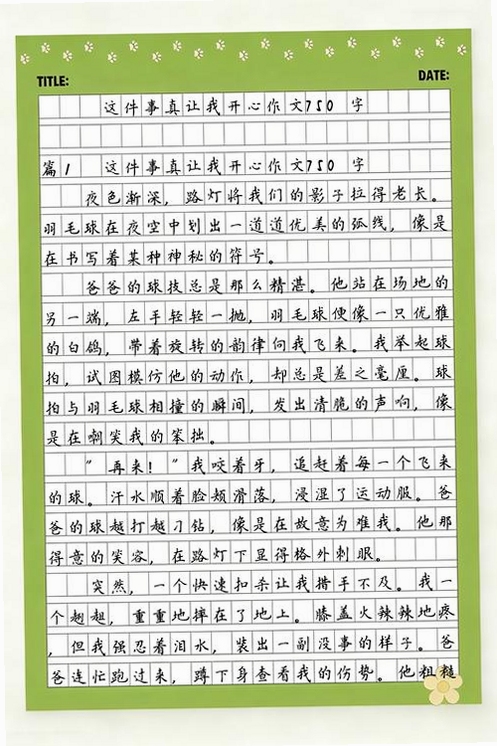 TITLE:
DATE:
这件事真让我开心作文750 字
篇1 这件事真让我开心作文750 字
夜色渐深，路灯将我们的影子拉得老长。
羽毛球在夜空中划出一道道优美的弧线，像是
在书写着某种神秘的符号。
爸爸的球技总是那么精湛。他站在场地的
另一端，左手轻轻一抛，羽毛球便像一只优雅
的白鸽，带着旋转的韵律向我飞来。我举起球
拍，试图模仿他的动作，却总是差之毫厘。球
拍与羽毛球相撞的瞬间，发出清脆的声响，像
是在嘲笑我的笨拙。
"再来！"我咬着牙，追赶着每一个飞来
的球。汗水顺着脸颊滑落，浸湿了运动服。爸
爸的球越打越刁钻，像是在故意为难我。他那
得意的笑容，在路灯下显得格外刺眼。
突然，一个快速扣杀让我措手不及。我一
个趔趄，重重地摔在了地上。膝盖火辣辣地疼
，但我强忍着泪水，装出一副没事的样子。爸
爸连忙跑过来，蹲下身查看我的伤势。他粗糙